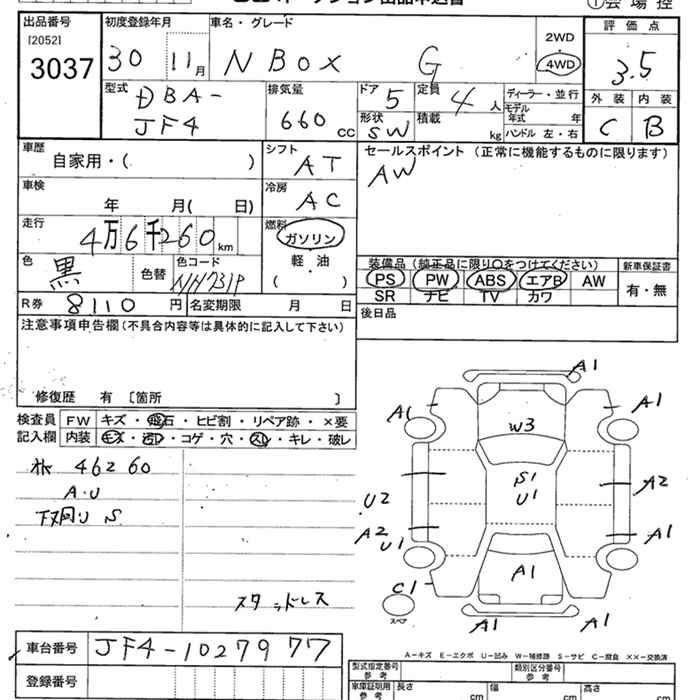 ①会場控
出品番号
[2052]
3037
初度登録年月
30 11月
車名・グレード
N BOX G
2WD
4WD
評価点
3.5
外装 内装
C B
型式
DBA-
JF4
排気量
660 CC
ドア 5
形状 SW
定員 4 人
積載 kg
ディーラー・並行
モデル年式 年
ハンドル 左・右
車歴
自家用・( )
シフト
AT
セールスポイント (正常に機能するものに限ります)
AW
車検
年 月( 日)
冷房
AC
走行
4万6千260km
燃料
ガソリン
軽油
・
( )
色
黒
色替
色コード
NH731P
装備品 (純正品に限り○をつけてください)
PS PW ABS エアB AW
SR ナビ TV カワ
新車保証書
有・無
R券 8110円
名変期限 月 日
後日品
注意事項申告欄(不具合内容等は具体的に記入して下さい)
修復歴 有 〔箇所 〕
検査員
記入欄
FW キズ・飛石・ヒビ割・リペア跡・×要
内装 キズ・汚レ・コゲ・穴・スレ・キレ・破レ
46260
A.U
下廻り S
スタッドレス
A1
A1
A1
W3
S1
U1
A2
U2
A2
U1
A1
A1
C1
スペア
A1
A1
A-キズ E-エクボ U-凹み W-補修跡 S-サビ C-腐食 ××-交換済
車台番号
JF4-1027977
登録番号
型式指定番号
参考
類別区分番号
参考
車庫証明用
参考
長さ cm
幅 cm
高さ cm